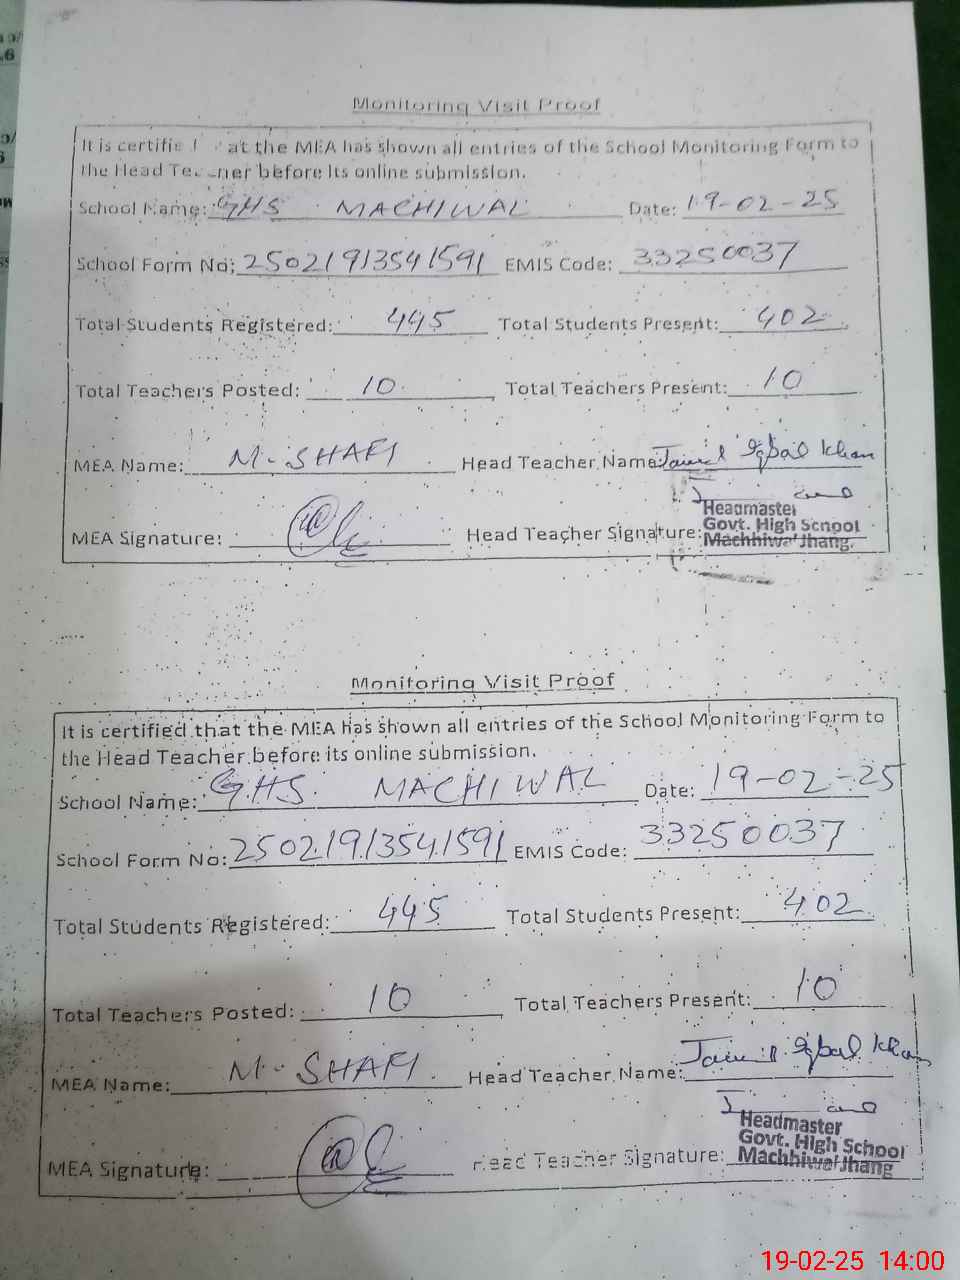 Monitoring Visit Proof
It is certifie at the MEA has shown all entries of the School Monitoring Form to
the Head Te ner before its online submission.
School Name: GHS MACHIWAL Date: 19-02-25
School Form No: 25021913541591 EMIS Code: 33250037
Total Students Registered: 445 Total Students Present: 402
Total Teachers Posted: 10 Total Teachers Present: 10
MEA Name: M-SHAFI Head Teacher Name: Jamil Iqbal Khan
MEA Signature: Head Teacher Signature:
Headmaster
Govt. High School
Machhiwal Jhang.
Monitoring Visit Proof
It is certified that the MEA has shown all entries of the School Monitoring Form to
the Head Teacher before its online submission.
School Name: GHS MACHIWAL Date: 19-02-25
School Form No: 25021913541591 EMIS Code: 33250037
Total Students Registered: 445 Total Students Present: 402
Total Teachers Posted: 10 Total Teachers Present: 10
MEA Name: M-SHAFI Head Teacher Name: Jamil Iqbal Khan
MEA Signature: Head Teacher Signature:
Headmaster
Govt. High School
Machhiwal Jhang
19-02-25 14:00